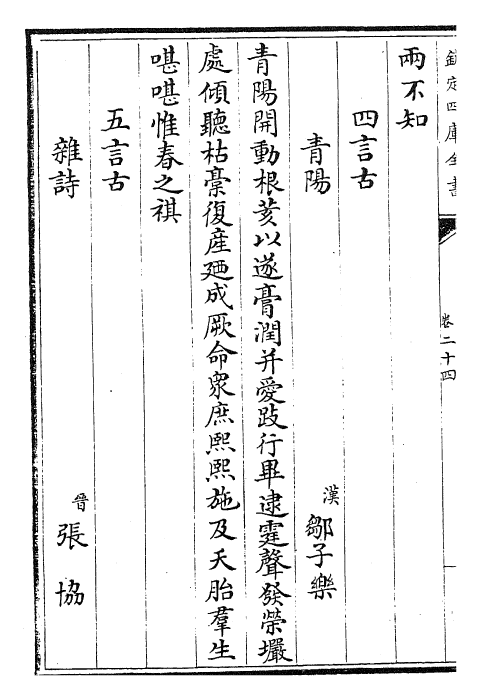 欽定四庫全書
卷二十四
兩不知
四言古
青陽 漢 鄒子樂
青陽開動根荄以遂膏潤并愛跂行畢逮霆聲發榮壧
處傾聽枯槀復産廼成厥命衆庶熙熙施及夭胎羣生
啿啿惟春之祺
五言古
雜詩 晉 張協